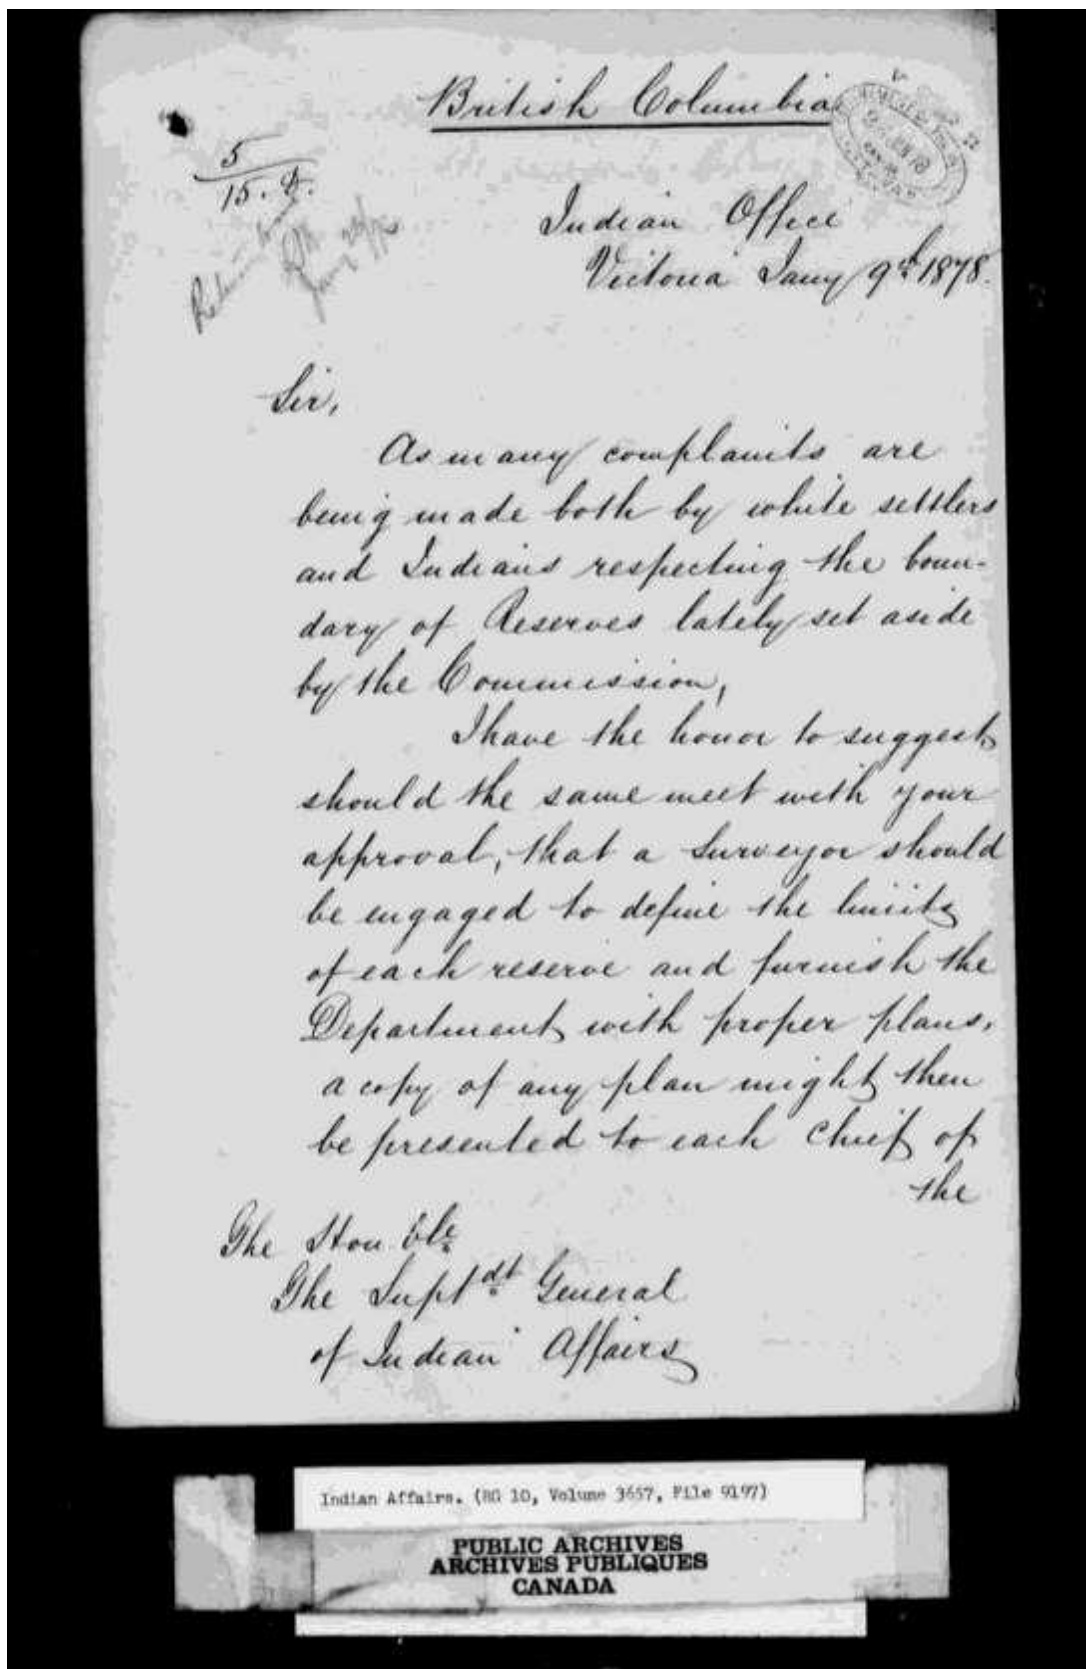 British Columbia
5
15. B.
Indian Office
Victoria Jany 9th 1878.
Sir,
As many complaints are
being made both by white settlers
and Indians respecting the boun-
dary of Reserves lately set aside
by the Commission,
I have the honor to suggest
should the same meet with your
approval, that a Surveyor should
be engaged to define the limits
of each reserve and furnish the
Department with proper plans,
a copy of any plan might then
be presented to each Chief of
the
The Honble
The Suptdt General
of Indian Affairs
Indian Affairs. (RG 10, Volume 3657, File 9197)
PUBLIC ARCHIVES
ARCHIVES PUBLIQUES
CANADA